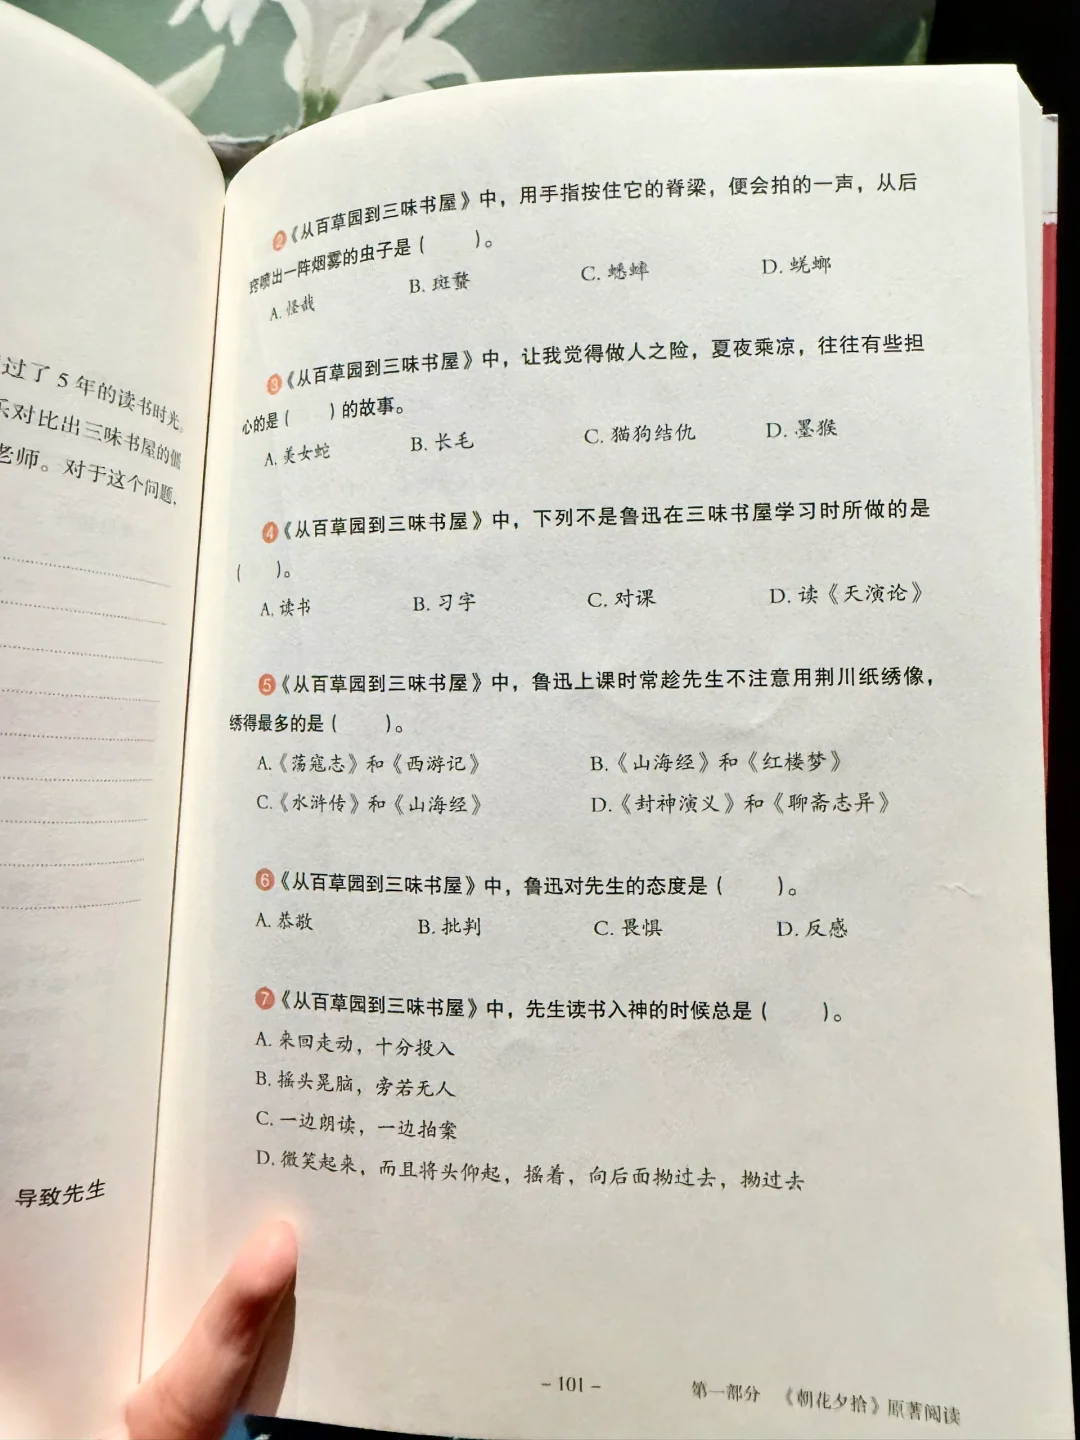 过了5年的读书时光。
乐对比出三味书屋的僵
老师。对于这个问题，
导致先生
2《从百草园到三味书屋》中，用手指按住它的脊梁，便会拍的一声，从后
窍喷出一阵烟雾的虫子是（　　）。
A. 怪哉　B. 斑蝥　C. 蟋蟀　D. 蜣螂
3《从百草园到三味书屋》中，让我觉得做人之险，夏夜乘凉，往往有些担
心的是（　　）的故事。
A. 美女蛇　B. 长毛　C. 猫狗结仇　D. 墨猴
4《从百草园到三味书屋》中，下列不是鲁迅在三味书屋学习时所做的是
（　　）。
A. 读书　B. 习字　C. 对课　D. 读《天演论》
5《从百草园到三味书屋》中，鲁迅上课时常趁先生不注意用荆川纸绣像，
绣得最多的是（　　）。
A.《荡寇志》和《西游记》　B.《山海经》和《红楼梦》
C.《水浒传》和《山海经》　D.《封神演义》和《聊斋志异》
6《从百草园到三味书屋》中，鲁迅对先生的态度是（　　）。
A. 恭敬　B. 批判　C. 畏惧　D. 反感
7《从百草园到三味书屋》中，先生读书入神的时候总是（　　）。
A. 来回走动，十分投入
B. 摇头晃脑，旁若无人
C. 一边朗读，一边拍案
D. 微笑起来，而且将头仰起，摇着，向后面拗过去，拗过去
- 101 -　第一部分　《朝花夕拾》原著阅读